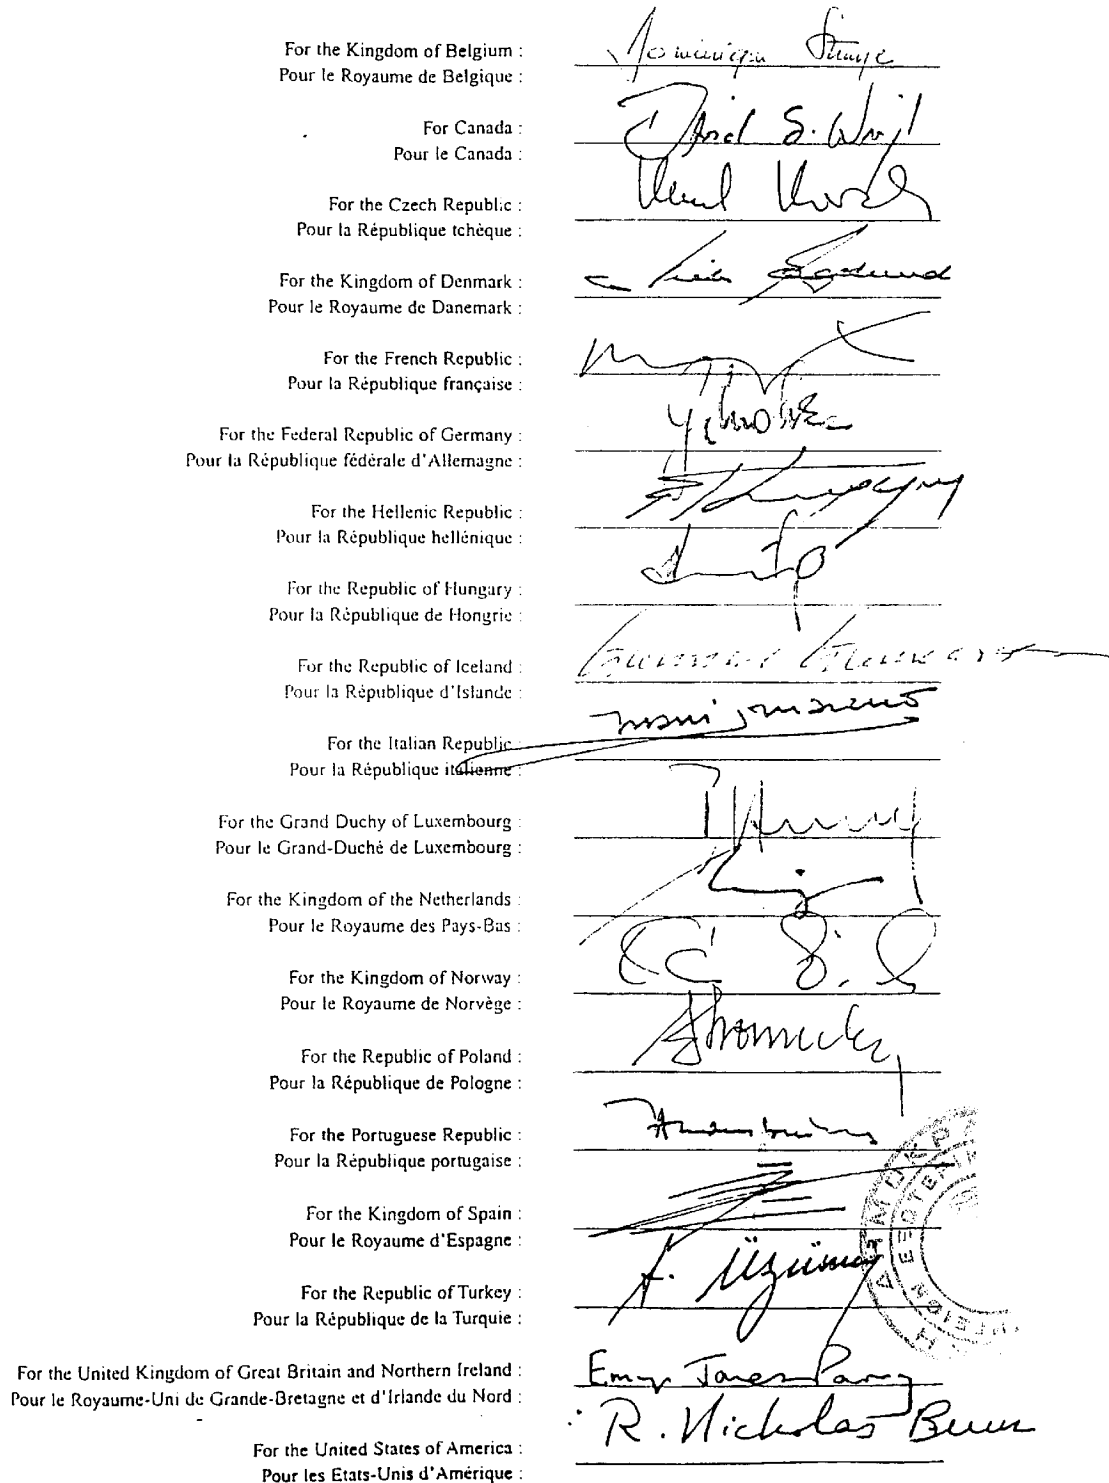 For the Kingdom of Belgium :
Pour le Royaume de Belgique :
For Canada :
Pour le Canada :
David S.
For the Czech Republic :
Pour la République tchèque :
For the Kingdom of Denmark :
Pour le Royaume de Danemark :
For the French Republic :
Pour la République française :
For the Federal Republic of Germany :
Pour la République fédérale d'Allemagne :
For the Hellenic Republic :
Pour la République hellénique :
For the Republic of Hungary :
Pour la République de Hongrie :
For the Republic of Iceland :
Pour la République d'Islande :
For the Italian Republic :
Pour la République italienne :
For the Grand Duchy of Luxembourg :
Pour le Grand-Duché de Luxembourg :
For the Kingdom of the Netherlands :
Pour le Royaume des Pays-Bas :
For the Kingdom of Norway :
Pour le Royaume de Norvège :
For the Republic of Poland :
Pour la République de Pologne :
For the Portuguese Republic :
Pour la République portugaise :
For the Kingdom of Spain :
Pour le Royaume d'Espagne :
For the Republic of Turkey :
Pour la République de la Turquie :
For the United Kingdom of Great Britain and Northern Ireland :
Pour le Royaume-Uni de Grande-Bretagne et d'Irlande du Nord :
R. Nicholas Burns
For the United States of America :
Pour les Etats-Unis d'Amérique :